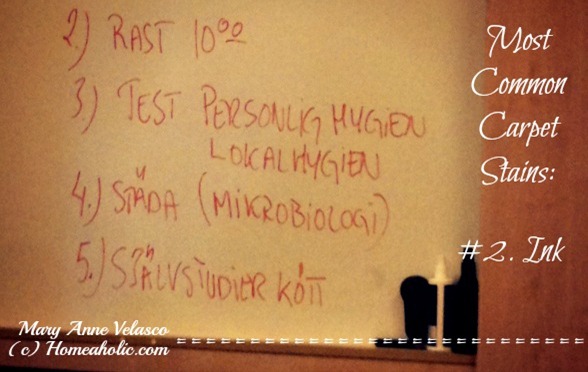 2.) RAST 10⁰⁰
3) TEST PERSONLIG HYGIEN
LOKALHYGIEN
4.) STÄDA (MIKROBIOLOGI)
5.) SJÄLVSTUDIER KÖTT
Most
Common
Carpet
Stains:
#2. Ink
Mary Anne Velasco
(c) Homeaholic.com